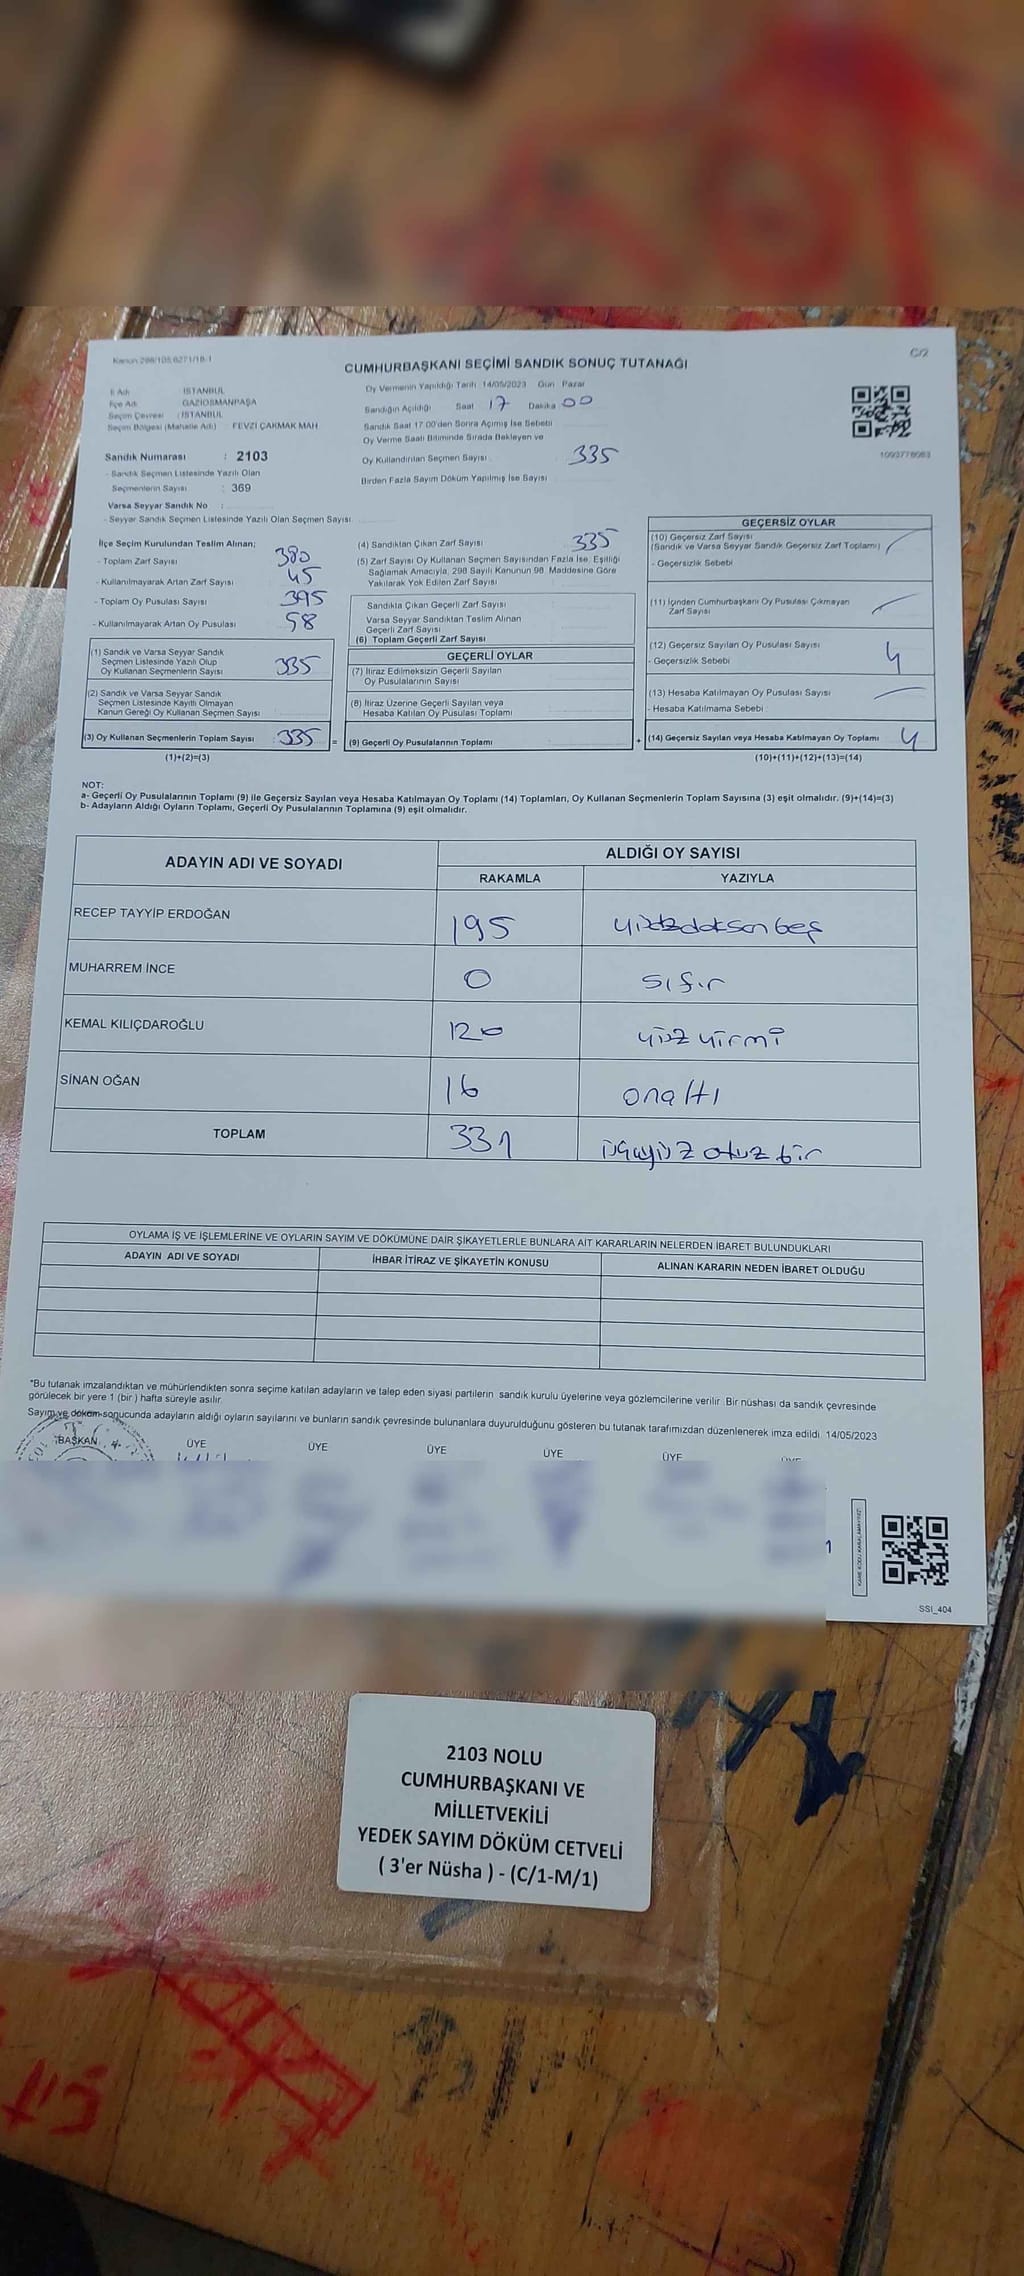 Kanun:298/105,6271/18-1
C/2
CUMHURBAŞKANI SEÇİMİ SANDIK SONUÇ TUTANAĞI
İl Adı : İSTANBUL
İlçe Adı : GAZİOSMANPAŞA
Seçim Çevresi : İSTANBUL
Seçim Bölgesi (Mahalle Adı) : FEVZİ ÇAKMAK MAH
Sandık Numarası : 2103
- Sandık Seçmen Listesinde Yazılı Olan
Seçmenlerin Sayısı : 369
Varsa Seyyar Sandık No :
- Seyyar Sandık Seçmen Listesinde Yazılı Olan Seçmen Sayısı:
Oy Vermenin Yapıldığı Tarih 14/05/2023 Gün Pazar
Sandığın Açıldığı Saat 17 Dakika 00
Sandık Saat 17.00'den Sonra Açılmış İse Sebebi
Oy Verme Saati Bitiminde Sırada Bekleyen ve
Oy Kullandırılan Seçmen Sayısı : 335
Birden Fazla Sayım Döküm Yapılmış İse Sayısı
1093778083
İlçe Seçim Kurulundan Teslim Alınan;
- Toplam Zarf Sayısı 380
- Kullanılmayarak Artan Zarf Sayısı 45
- Toplam Oy Pusulası Sayısı 395
- Kullanılmayarak Artan Oy Pusulası 58
(1) Sandık ve Varsa Seyyar Sandık
Seçmen Listesinde Yazılı Olup
Oy Kullanan Seçmenlerin Sayısı 335
(2) Sandık ve Varsa Seyyar Sandık
Seçmen Listesinde Kayıtlı Olmayan
Kanun Gereği Oy Kullanan Seçmen Sayısı
(3) Oy Kullanan Seçmenlerin Toplam Sayısı 335
(1)+(2)=(3)
(4) Sandıktan Çıkan Zarf Sayısı 335
(5) Zarf Sayısı Oy Kullanan Seçmen Sayısından Fazla İse, Eşitliği
Sağlamak Amacıyla, 298 Sayılı Kanunun 98. Maddesine Göre
Yakılarak Yok Edilen Zarf Sayısı
Sandıkta Çıkan Geçerli Zarf Sayısı
Varsa Seyyar Sandıktan Teslim Alınan
Geçerli Zarf Sayısı
(6) Toplam Geçerli Zarf Sayısı
GEÇERLİ OYLAR
(7) İtiraz Edilmeksizin Geçerli Sayılan
Oy Pusulalarının Sayısı
(8) İtiraz Üzerine Geçerli Sayılan veya
Hesaba Katılan Oy Pusulası Toplamı
= (9) Geçerli Oy Pusulalarının Toplamı +
GEÇERSİZ OYLAR
(10) Geçersiz Zarf Sayısı
(Sandık ve Varsa Seyyar Sandık Geçersiz Zarf Toplamı)
- Geçersizlik Sebebi
(11) İçinden Cumhurbaşkanı Oy Pusulası Çıkmayan
Zarf Sayısı
(12) Geçersiz Sayılan Oy Pusulası Sayısı
- Geçersizlik Sebebi 4
(13) Hesaba Katılmayan Oy Pusulası Sayısı
- Hesaba Katılmama Sebebi
(14) Geçersiz Sayılan veya Hesaba Katılmayan Oy Toplamı 4
(10)+(11)+(12)+(13)=(14)
NOT:
a- Geçerli Oy Pusulalarının Toplamı (9) ile Geçersiz Sayılan veya Hesaba Katılmayan Oy Toplamı (14) Toplamları, Oy Kullanan Seçmenlerin Toplam Sayısına (3) eşit olmalıdır. (9)+(14)=(3)
b- Adayların Aldığı Oyların Toplamı, Geçerli Oy Pusulalarının Toplamına (9) eşit olmalıdır.
ADAYIN ADI VE SOYADI
ALDIĞI OY SAYISI
RAKAMLA YAZIYLA
RECEP TAYYİP ERDOĞAN 195 yüzdoksan beş
MUHARREM İNCE 0 sıfır
KEMAL KILIÇDAROĞLU 120 yüz yirmi
SİNAN OĞAN 16 onaltı
TOPLAM 331 üçyüz otuz bir
OYLAMA İŞ VE İŞLEMLERİNE VE OYLARIN SAYIM VE DÖKÜMÜNE DAİR ŞİKAYETLERLE BUNLARA AİT KARARLARIN NELERDEN İBARET BULUNDUKLARI
ADAYIN ADI VE SOYADI İHBAR İTİRAZ VE ŞİKAYETİN KONUSU ALINAN KARARIN NEDEN İBARET OLDUĞU
*Bu tutanak imzalandıktan ve mühürlendikten sonra seçime katılan adayların ve talep eden siyasi partilerin sandık kurulu üyelerine veya gözlemcilerine verilir. Bir nüshası da sandık çevresinde
görülecek bir yere 1 (bir ) hafta süreyle asılır.
Sayım ve döküm sonucunda adayların aldığı oyların sayılarını ve bunların sandık çevresinde bulunanlara duyurulduğunu gösteren bu tutanak tarafımızdan düzenlenerek imza edildi. 14/05/2023
BAŞKAN ÜYE ÜYE ÜYE ÜYE ÜYE ÜYE
KARE KODU KARALAMAYINIZ!
SSI_404
2103 NOLU
CUMHURBAŞKANI VE
MİLLETVEKİLİ
YEDEK SAYIM DÖKÜM CETVELİ
( 3'er Nüsha ) - (C/1-M/1)